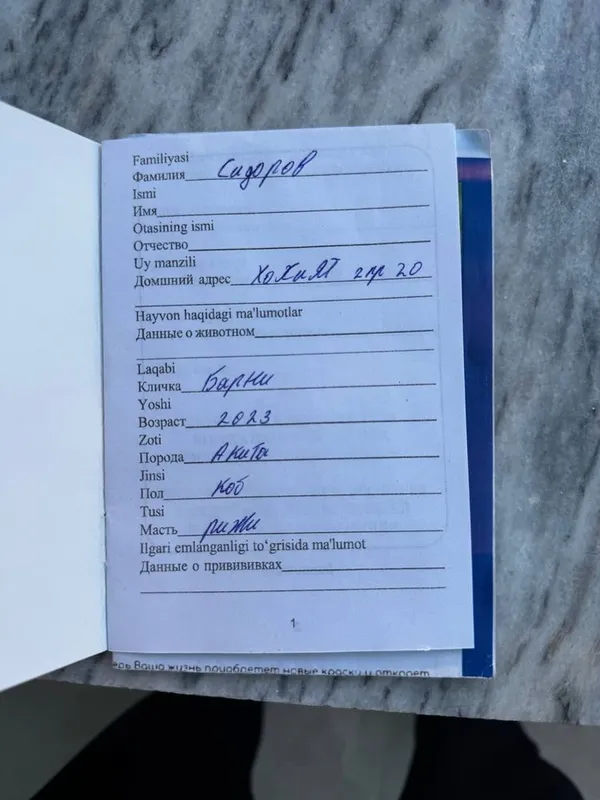 Familiyasi
Фамилия Сидоров
Ismi
Имя
Otasining ismi
Отчество
Uy manzili
Домшний адрес Хокият 2пр 20
Hayvon haqidagi ma'lumotlar
Данные о животном
Laqabi
Кличка Барни
Yoshi
Возраст 2023
Zoti
Порода Акита
Jinsi
Пол коб
Tusi
Масть рижи
Ilgari emlanganligi to‘grisida ma'lumot
Данные о привививках
1
ерь Вашо жизнь приобретет новые краски и откроет